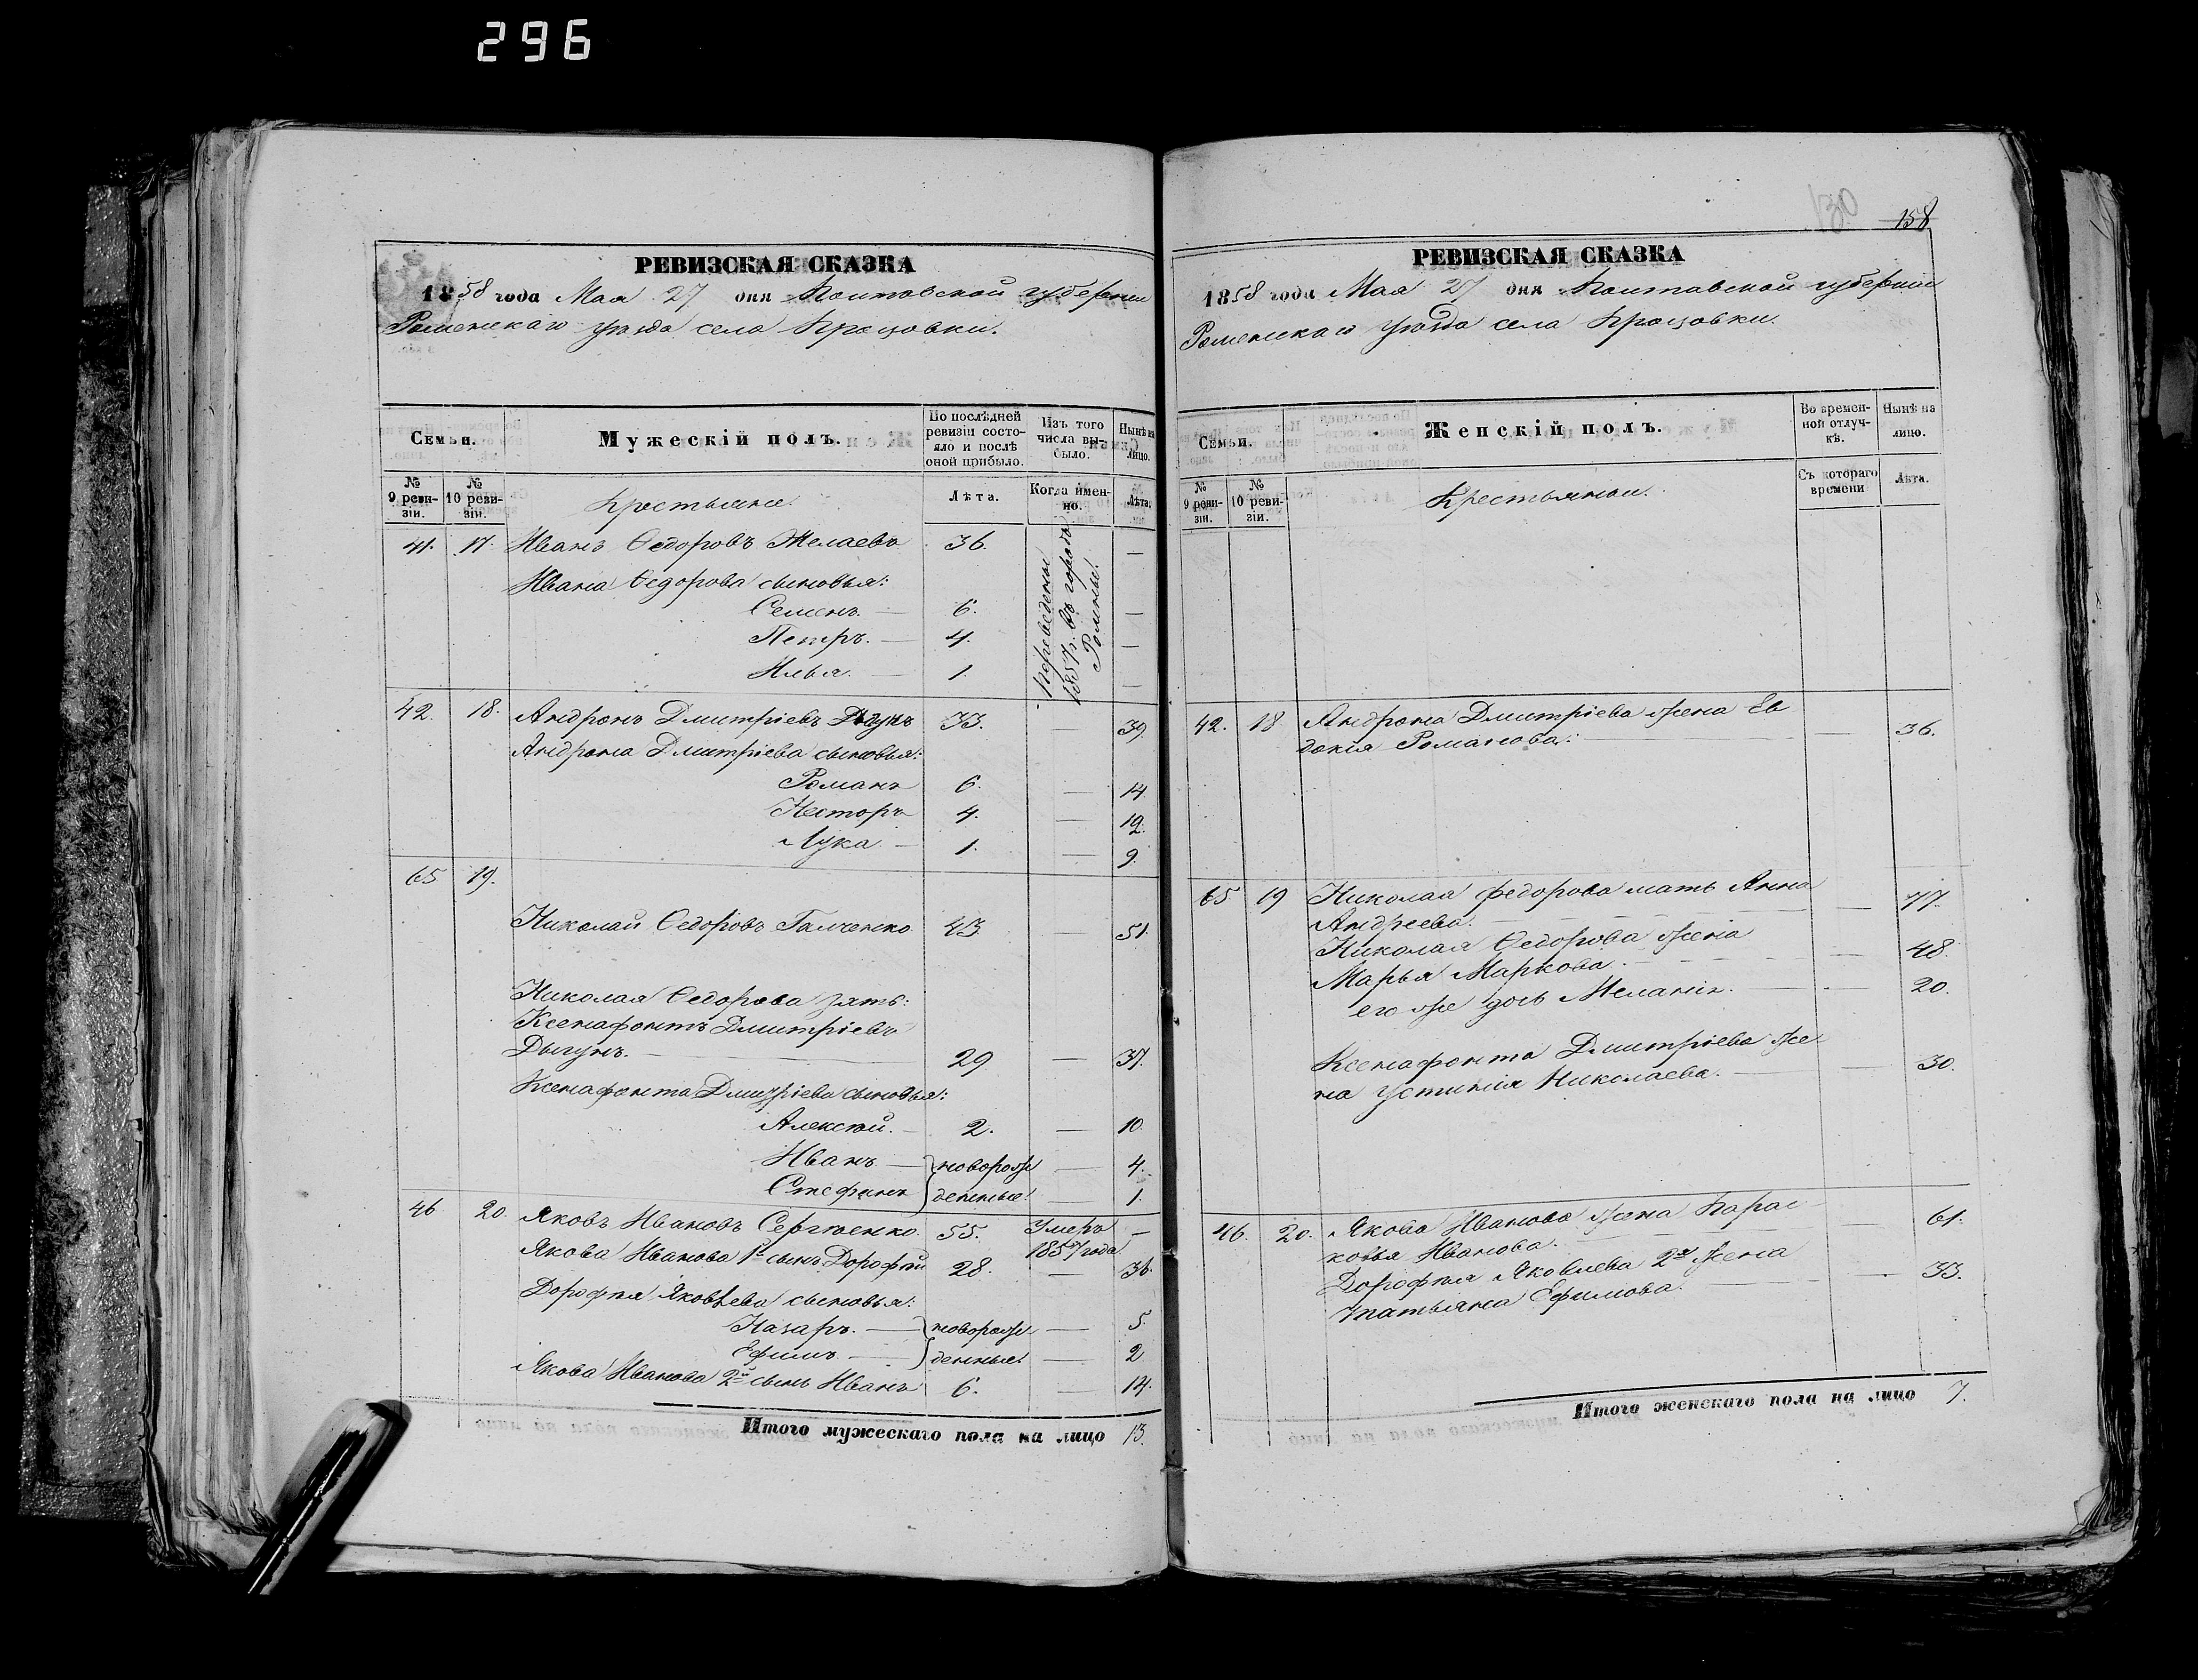 296
РЕВИЗСКАЯ СКАЗКА
1858 года Мая 27 дня Полтавской губернии
Роменскаго уѣзда села Процовки.
Семьи.
Мужескій полъ.
По послѣдней ревизіи состояло и послѣ оной прибыло.
Изъ того числа выбыло.
Нынѣ на лицо.
№ 9 ревизіи.
№ 10 ревизіи.
Крестьяне.
Лѣта.
Когда именно.
Лѣта.
41. 17. Иванъ Ѳедоровъ Желаевъ 36. —
Переведены 1857 г. въ городъ Ромны.
Ивана Ѳедорова сыновья:
Семенъ. — 6. —
Петръ. — 4. —
Илья. — 1. —
42. 18. Андронъ Дмитріевъ 33. — 39.
Андрона Дмитріева сыновья:
Романъ 6. — 14.
Несторъ 4. — 12.
Лука — 1. — 9.
65 19.
Николай Ѳедоровъ Галченко 43. — 51.
Николая Ѳедорова зять:
Ксенафонтъ Дмитріевъ
Дыгунъ. — 29 — 37.
Ксенафонта Дмитріева сыновья:
Алексѣй. — 2. — 10.
Иванъ — новорож — 4.
Стефанъ денные. — 1.
46 20. Яковъ Ивановъ Сергѣенко 55. Умеръ —
1857 года
Якова Иванова 1й сынъ Дорофѣй 28. — 36.
Дорофѣя Яковлева сыновья:
Назаръ. — новорож — 5.
Ефимъ — денные. — 2
Якова Иванова 2й сынъ Иванъ 6. — 14.
Итого мужескаго пола на лицо 13.
130
158
РЕВИЗСКАЯ СКАЗКА
1858 года Мая 27 дня Полтавской губерніи
Роменскаго уѣзда села Процовки.
Семьи.
Женскій полъ.
Во временной отлучкѣ.
Нынѣ на лицо.
№ 9 ревизіи.
№ 10 ревизіи.
Крестьянки.
Съ котораго времени
Лѣта.
42. 18 Андрона Дмитріева жена Ев
докія Романова: — — 36.
65 19 Николая Федорова мать Анна
Андреева. — — 77.
Николая Ѳедорова жена
Марья Маркова. — — 48.
его же дочь Меланія. — — 20.
Ксенафонта Дмитріева же
на Устинія Николаева. — — 30.
46. 20. Якова Иванова жена Парас
ковья Иванова. — — 61.
Дорофѣя Яковлева 2я жена
Татьяна Ефимова. — — 33.
Итого женскаго пола на лицо 7.